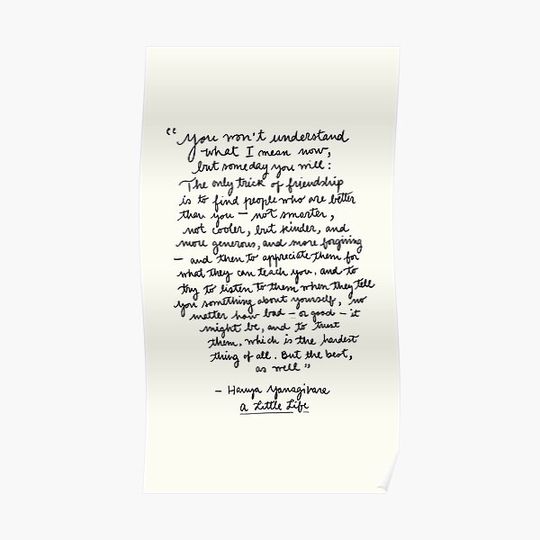 “you won't understand
what I mean now,
but someday you will:
The only trick of friendship
is to find people who are better
than you — not smarter,
not cooler, but kinder, and
more generous, and more forgiving
— and then to appreciate them for
what they can teach you, and to
try to listen to them when they tell
you something about yourself, no
matter how bad — or good — it
might be, and to trust
them, which is the hardest
thing of all. But the best,
as well”
— Hanya Yanagihara
A Little Life